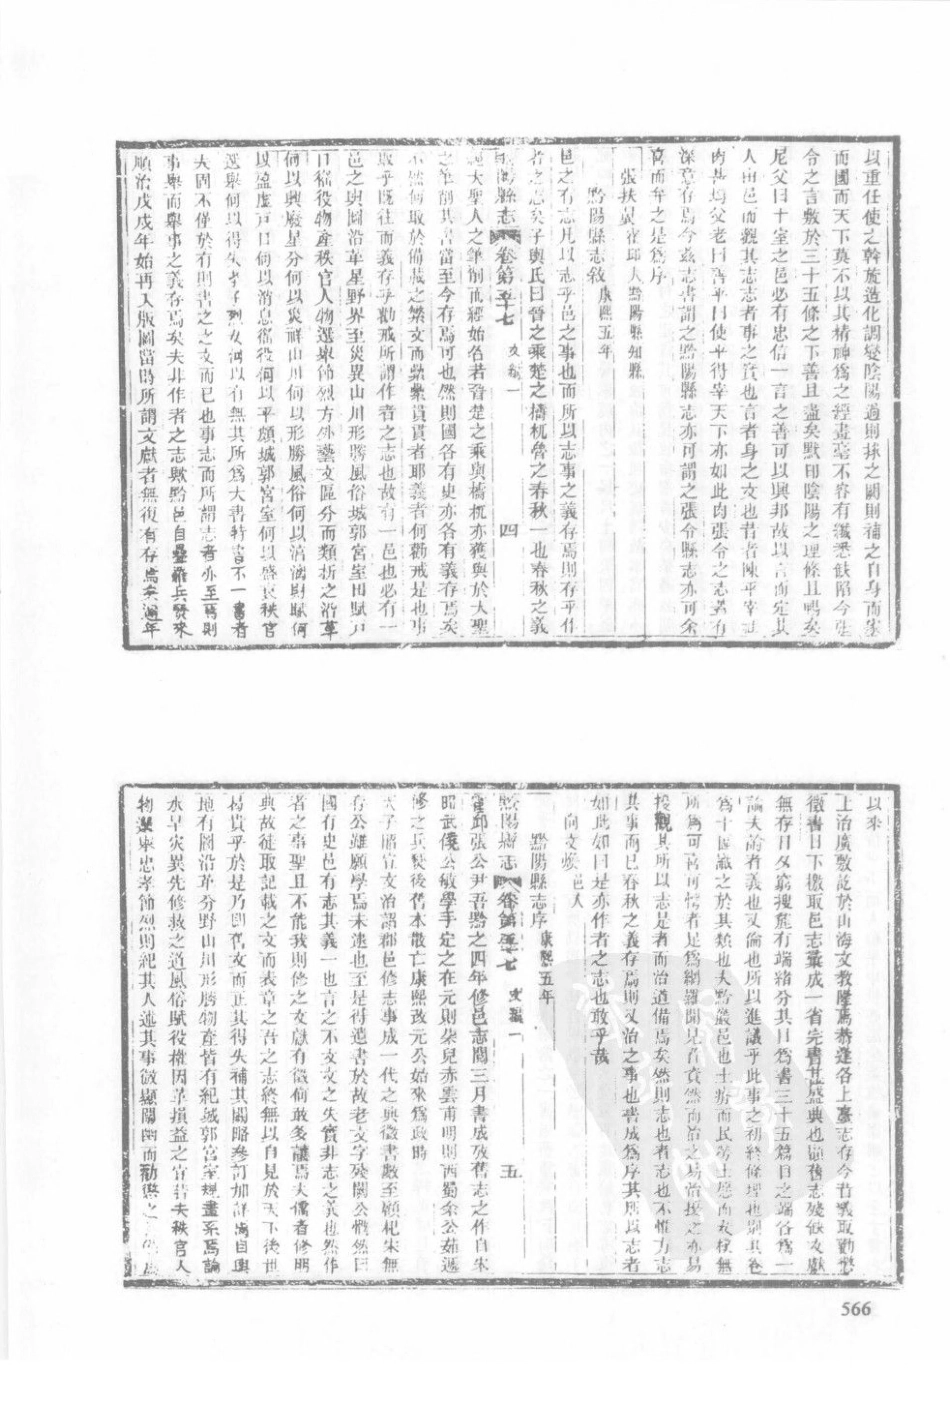 以重任使之斡旋造化調燮陰陽過則抹之闕則補之自身而家
而國而天下莫不以其精神為之經畫毫不容有纖悉缺陷今張
令之言敷於三十五條之下善且盡矣默印陰陽之理條且暢矣
尼父曰十室之邑必有忠信一言之善可以興邦故以言而定其
人由邑而觀其志志者事之實也言者身之文也昔者陳平宰
肉甚均父老曰善平曰使平得宰天下亦如此肉張令之志蓋有
深意存焉今茲志書謂之黔陽縣志亦可謂之張令縣志亦可余
喜而弁之是為序
張扶翼 邱人黔陽縣知縣
黔陽縣志敘 康熙五年
邑之有志凡以志乎邑之事也而所以志事之義存焉則存乎作
者之志矣子輿氏曰晉之乘楚之檮杌魯之春秋一也春秋之義
黔陽縣志 卷第五十七 文編一 四
經大聖人之筆削而經始名若晉楚之乘與檮杌亦獲與於大聖
之筆削其書當至今存焉可也然則國各有史亦各有義存焉矣
不然何取於備載之繁文而纍纍貫貫者耶義者何勸戒是也事
取乎既往而義存乎勸戒所謂作者之志也故有一邑也必有一
邑之輿圖沿革星野界至災異山川形勝風俗城郭宮室田賦戶
口徭役物產秩官人物選舉節烈方外藝文區分而類析之沿革
何以興廢星分何以災祥山川何以形勝風俗何以淳漓財賦何
以盈虛戶口何以消息徭役何以平頗城郭宮室何以盛衰秩官
選舉何以得失孝子烈女何以有無其所為大書特書不一書者
夫固不僅於有則書之之文而已也事志而所謂志者亦至焉則
事舉而舉事之義存焉矣夫非作者之志歟黔邑自疊罹兵燹來
順治戊戌年始再入版圖當時所謂文獻者無復有存焉矣邇年
以來
上治廣敷訖於山海文教隆焉恭逢各上臺志存今昔義取勸懲
徵書日下檄取邑志彙成一省完書甚盛典也顧舊志殘缺文獻
無存日夕窮搜旄有端緒分其目為書三十五篇目之端各為一
論夫論者義也又倫也所以進議乎此事之初終條理也別其卷
為十區識之於其類也夫黔叢邑也土瘠而民勞土愿而女枝無
所為可喜可愕者足為網羅聞見者賁然而治之易治擾之亦易
擾觀其所以志是者而治道備焉矣然則志也者志也不惟方志
其事而已春秋之義存焉則又治之事也書成為序其所以志者
如此如曰是亦作者之志也敢乎哉
向文煥 邑人
黔陽縣志序 康熙五年
黔陽縣志 卷第五十七 文編一 五
張公尹吾黔之四年修邑志閱三月書成放舊志之作自宋
昭武侯公敏學手定之在元則朵兒赤雲甫明則西蜀余公茹遞
修之兵燹後舊本散亡康熙改元公始來為政時
天子昭宣文治詔郡邑修志事成一代之典徵書數至願杞宋無
存公雖願學焉未逮也至是得遺書於故老文字殘闕公慨然曰
國有史邑有志其義一也言之不文文之失實非志之義也然作
者之事聖且不能我則修之文獻有徵何敢多讓焉夫儒者修明
典故徒取記載之文而表章之吾之志終無以自見於天下後世
惡貴乎於是乃即舊文而正其得失補其闕略參訂加詳焉自輿
地有圖沿革分野山川形勝物產皆有紀城郭宮室經畫系焉論
水旱災異先修救之道風俗賦役權因革損益之宜若夫秩官人
物選舉忠孝節烈則紀其人述其事微顯闡幽而勸懲之
566